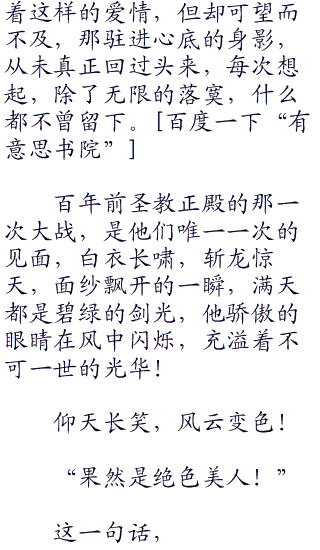 着这样的爱情，但却可望而
不及，那驻进心底的身影，
从未真正回过头来，每次想
起，除了无限的落寞，什么
都不曾留下。[百度一下“有
意思书院”]
百年前圣教正殿的那一
次大战，是他们唯一一次的
见面，白衣长啸，斩龙惊
天，面纱飘开的一瞬，满天
都是碧绿的剑光，他骄傲的
眼睛在风中闪烁，充溢着不
可一世的光华！
仰天长笑，风云变色！
“果然是绝色美人！”
这一句话，